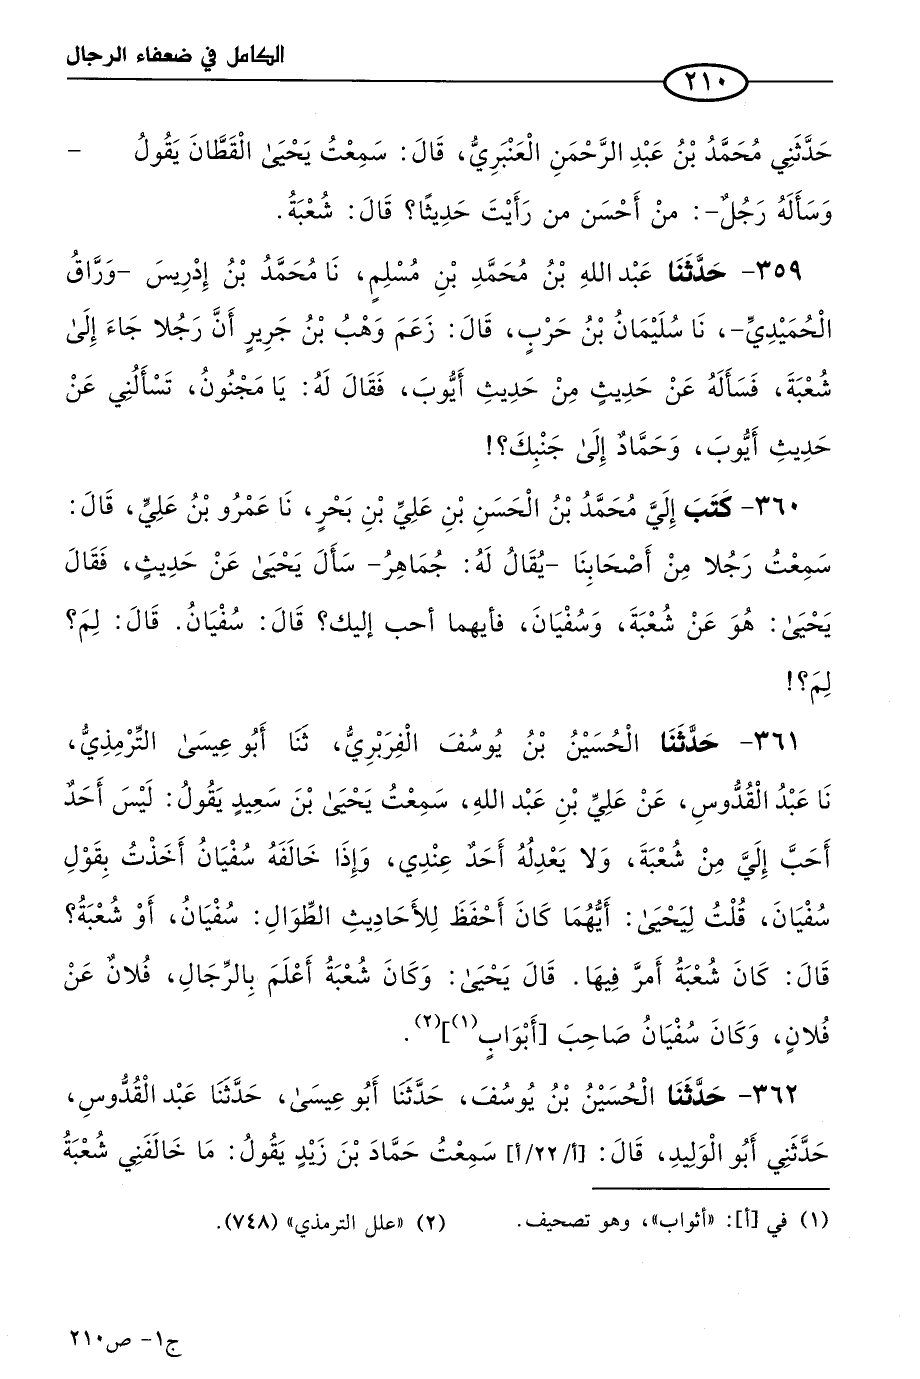 الكامل في ضعفاء الرجال
٢١٠
حَدَّثَنِي مُحَمَّدُ بْنُ عَبْدِ الرَّحْمَنِ الْعَنْبَرِيُّ، قَالَ: سَمِعْتُ يَحْيَىٰ الْقَطَّانَ يَقُولُ –
وَسَأَلَهُ رَجُلٌ-: منْ أَحْسَن من رَأَيْتَ حَدِيثًا؟ قَالَ: شُعْبَةُ.
٣٥٩- حَدَّثَنَا عَبْد اللهِ بْنُ مُحَمَّدِ بْنِ مُسْلِمٍ، نَا مُحَمَّدُ بْنُ إِدْرِيسَ -وَرَّاقُ
الْحُمَيْدِيِّ-، نَا سُلَيْمَانُ بْنُ حَرْبٍ، قَالَ: زَعَمَ وَهْبُ بْنُ جَرِيرٍ أَنَّ رَجُلا جَاءَ إِلَىٰ
شُعْبَةَ، فَسَأَلَهُ عَنْ حَدِيثٍ مِنْ حَدِيثِ أَيُّوبَ، فَقَالَ لَهُ: يَا مَجْنُونُ، تَسْأَلُنِي عَنْ
حَدِيثِ أَيُّوبَ، وَحَمَّادٌ إِلَىٰ جَنْبِكَ؟!
٣٦٠- كَتَبَ إِلَيَّ مُحَمَّدُ بْنُ الْحَسَنِ بْنِ عَلِيِّ بْنِ بَحْرٍ، نَا عَمْرُو بْنُ عَلِيٍّ، قَالَ:
سَمِعْتُ رَجُلا مِنْ أَصْحَابِنَا -يُقَالُ لَهُ: جُمَاهِرُ- سَأَلَ يَحْيَىٰ عَنْ حَدِيثٍ، فَقَالَ
يَحْيَىٰ: هُوَ عَنْ شُعْبَةَ، وَسُفْيَانَ، فأيهما أحب إليك؟ قَالَ: سُفْيَانُ. قَالَ: لِمَ؟
لِمَ؟!
٣٦١- حَدَّثَنَا الْحُسَيْنُ بْنُ يُوسُفَ الْفِرَبْرِيُّ، ثَنَا أَبُو عِيسَىٰ التِّرْمِذِيُّ،
نَا عَبْدُ الْقُدُّوسِ، عَنْ عَلِيِّ بْنِ عَبْد اللهِ، سَمِعْتُ يَحْيَىٰ بْنَ سَعِيدٍ يَقُولُ: لَيْسَ أَحَدٌ
أَحَبَّ إِلَيَّ مِنْ شُعْبَةَ، وَلا يَعْدِلُهُ أَحَدٌ عِنْدِي، وَإِذَا خَالَفَهُ سُفْيَانُ أَخَذْتُ بِقَوْلِ
سُفْيَانَ، قُلْتُ لِيَحْيَىٰ: أَيُّهُمَا كَانَ أَحْفَظَ لِلأَحَادِيثِ الطِّوَالِ: سُفْيَانُ، أَوْ شُعْبَةُ؟
قَالَ: كَانَ شُعْبَةُ أَمرَّ فِيهَا. قَالَ يَحْيَىٰ: وَكَانَ شُعْبَةُ أَعْلَمَ بِالرِّجَالِ، فُلانٌ عَنْ
فُلانٍ، وَكَانَ سُفْيَانُ صَاحِبَ [أَبْوَابٍ(١)](٢).
٣٦٢- حَدَّثَنَا الْحُسَيْنُ بْنُ يُوسُفَ، حَدَّثَنَا أَبُو عِيسَىٰ، حَدَّثَنَا عَبْد الْقُدُّوسِ،
حَدَّثَنِي أَبُو الْوَلِيدِ، قَالَ: [أ/٢٢/أ] سَمِعْتُ حَمَّادَ بْنَ زَيْدٍ يَقُولُ: مَا خَالَفَنِي شُعْبَةُ
(١) في [أ]: «أثواب»، وهو تصحيف. (٢) «علل الترمذي» (٧٤٨).
ج١- ص٢١٠